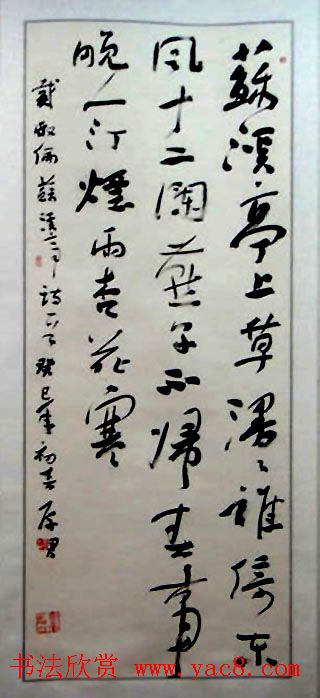 蘇溪亭上草漫々誰倚東
風十二闌燕子不歸春事
晚一汀煙雨杏花寒
戴叔倫蘇溪亭詩一首癸巳年初春
书法欣赏 www.yac8.com